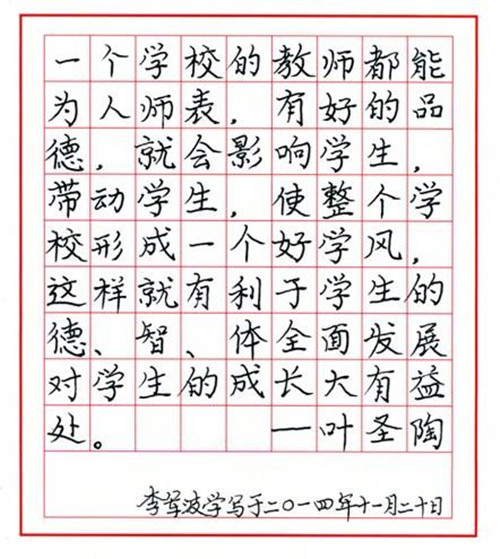 一个学校的教师都能
为人师表,有好的品
德,就会影响学生,
带动学生,使整个学
校形成一个好学风,
这样就有利于学生的
德、智、体全面发展
对学生的成长大有益
处。 一叶圣陶
李军波学写于二〇一四年十一月二十日